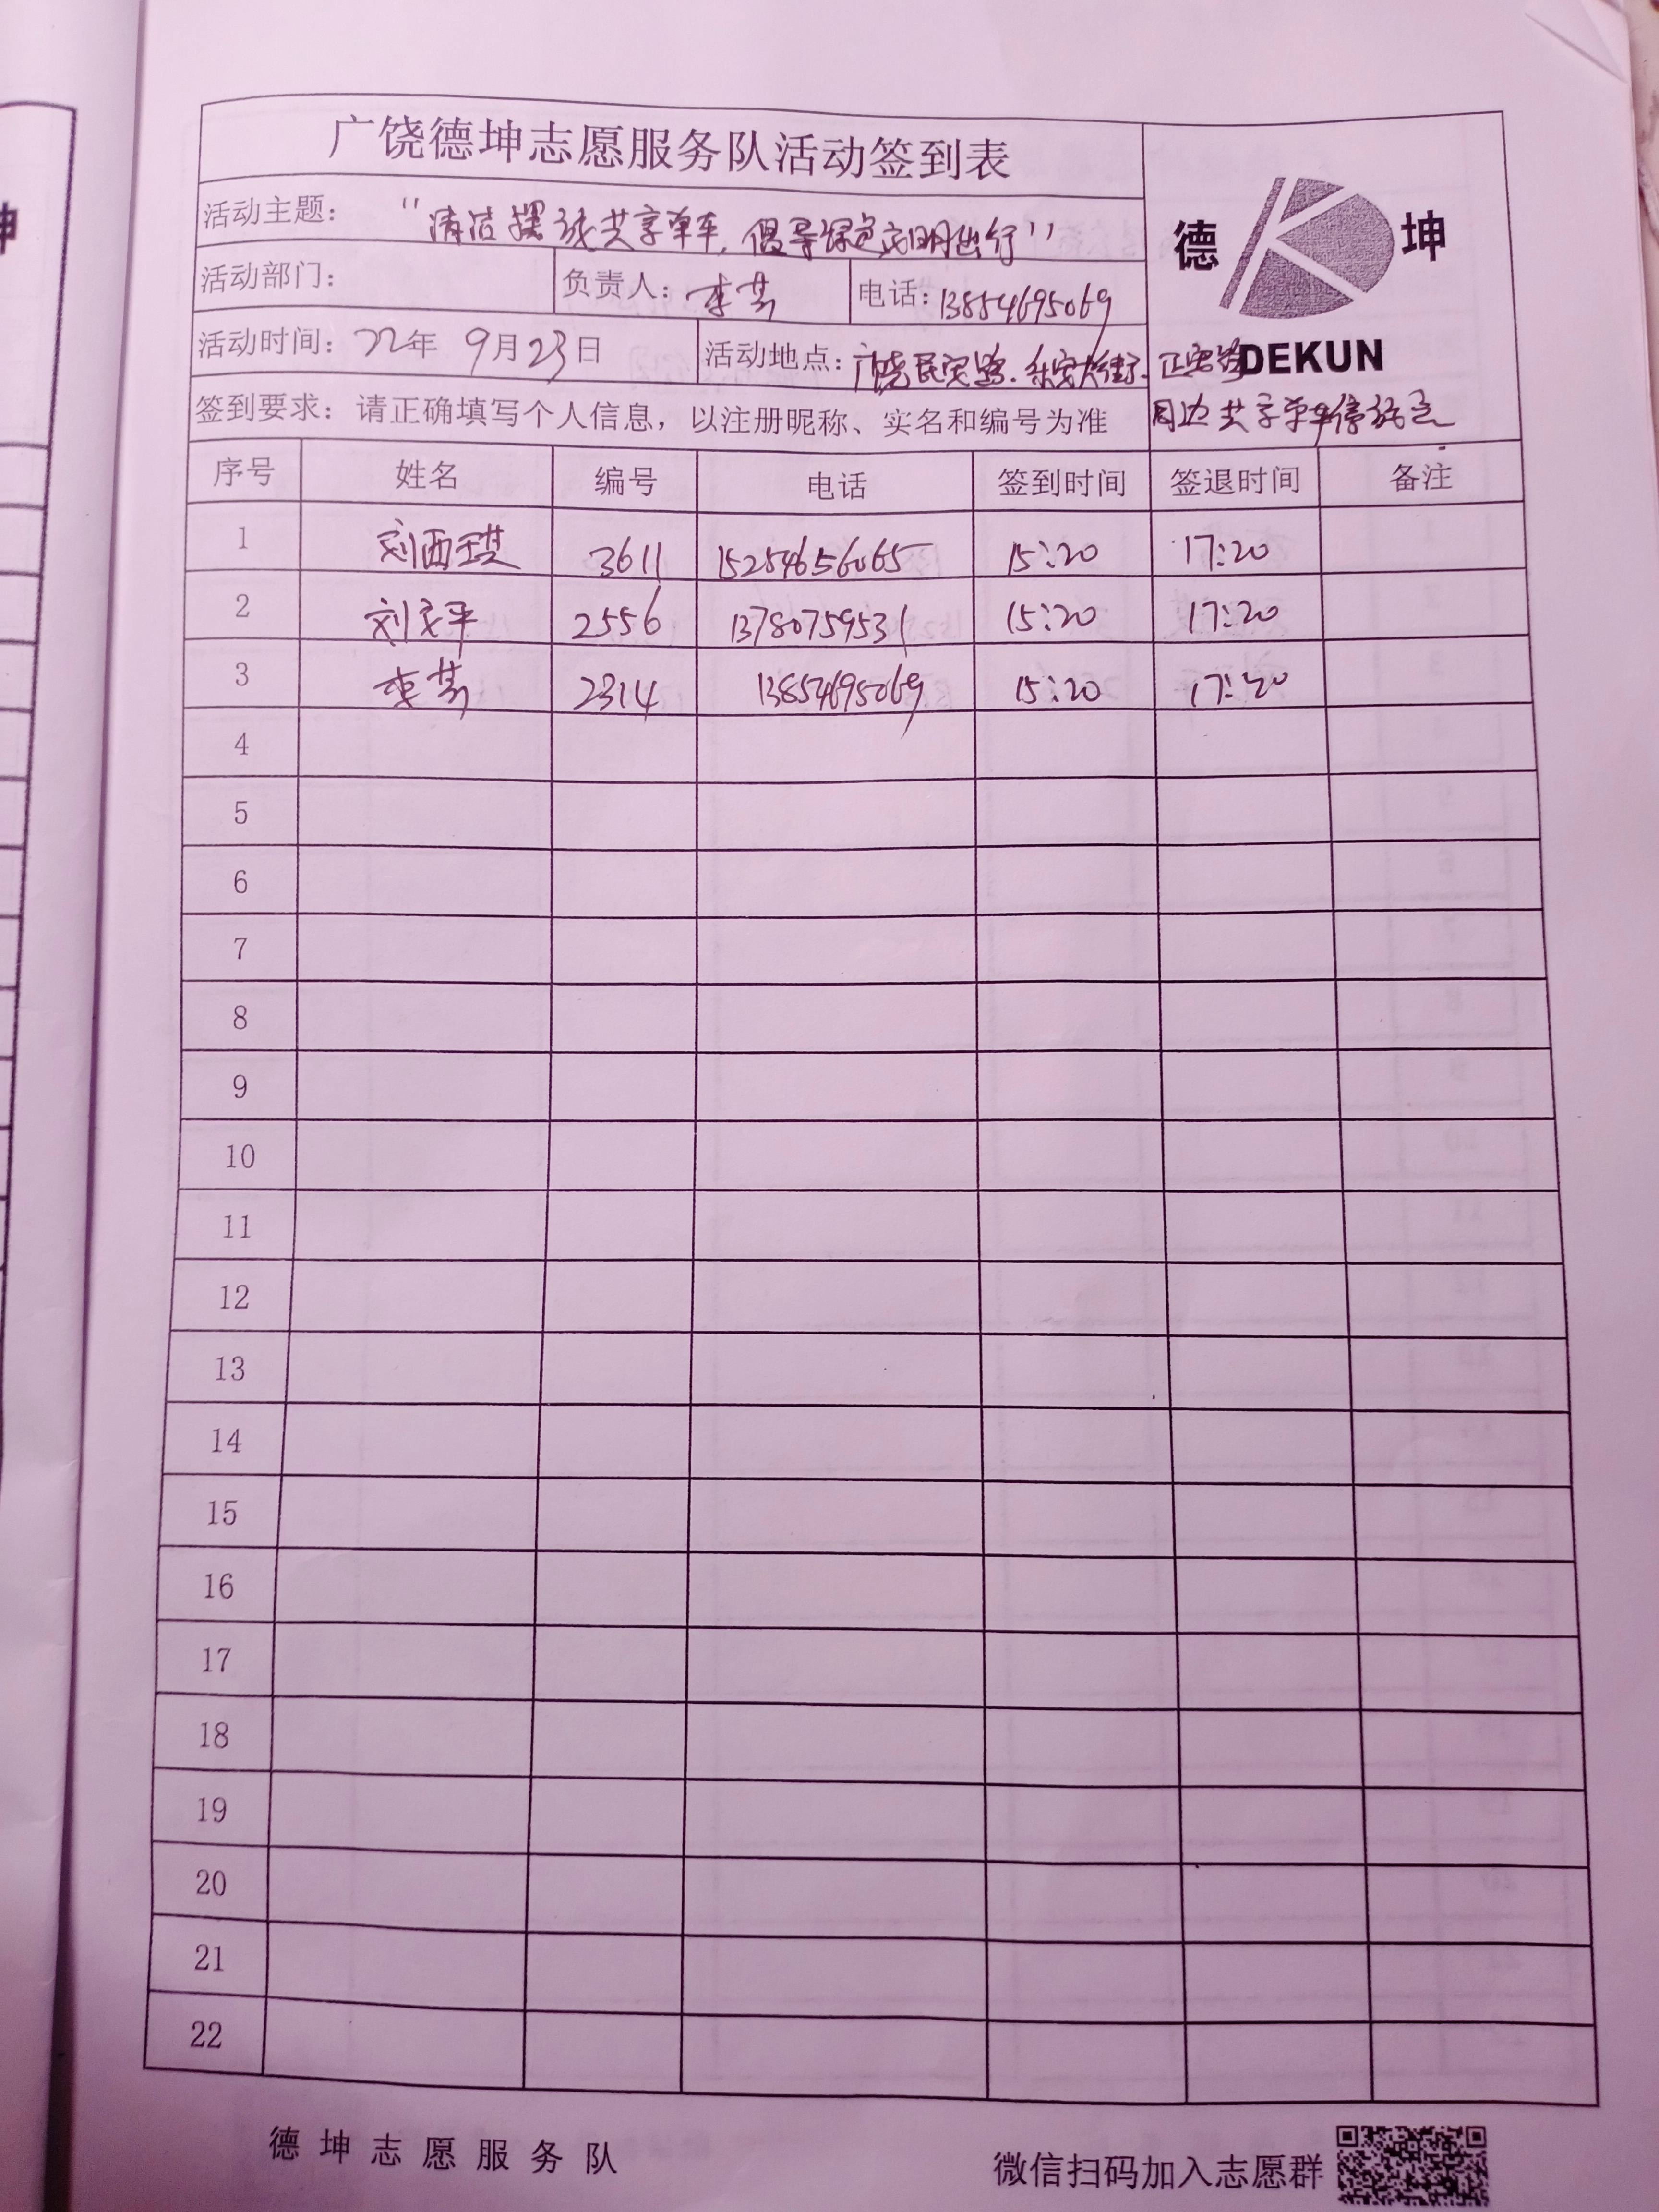 广饶德坤志愿服务队活动签到表
活动主题： "清洁摆放共享单车，倡导绿色文明出行"
德 坤
活动部门： 负责人： 李芳 电话：13854695069
活动时间：22年 9月23日 活动地点：广饶民安路、乐安大街、正安路
DEKUN
周边共享单车停放点
签到要求：请正确填写个人信息，以注册昵称、实名和编号为准
序号 姓名 编号 电话 签到时间 签退时间 备注
1 刘西琪 3611 15254656065 15:20 17:20
2 刘文平 2556 13780759531 15:20 17:20
3 李芳 2314 13854695069 15:20 17:20
4
5
6
7
8
9
10
11
12
13
14
15
16
17
18
19
20
21
22
德坤志愿服务队
微信扫码加入志愿群
坤